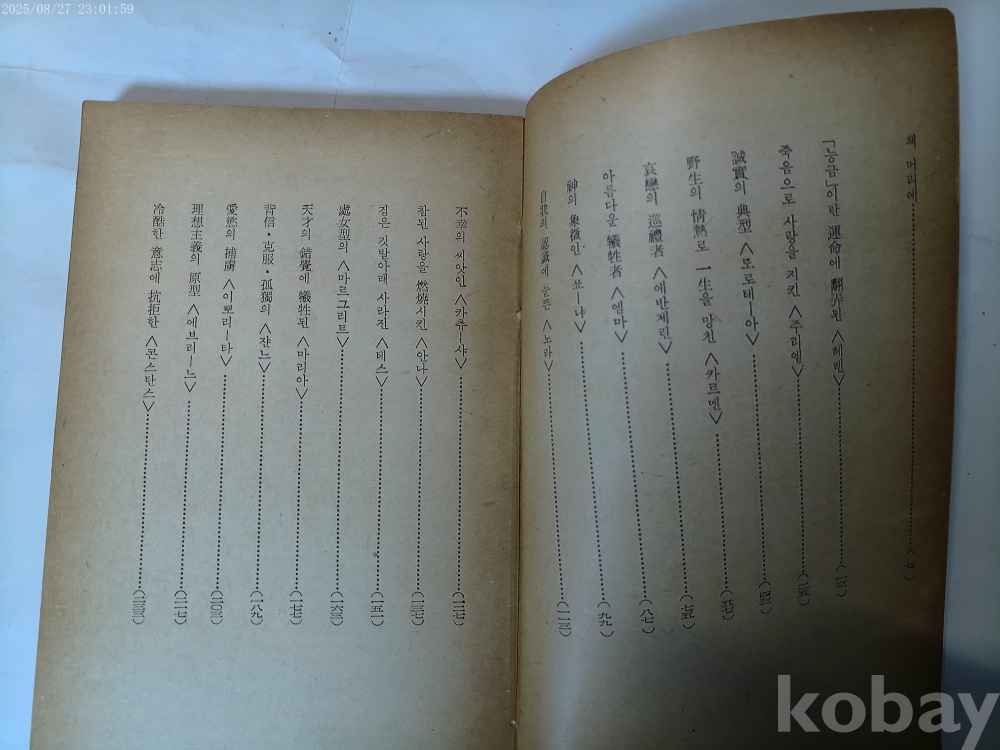 2025/08/27 23:01:59
책 머리에……………(七)
「능금」이란 運命에 翻弄된 〈헤렌〉……………(一三)
죽음으로 사랑을 지킨 〈주리엩〉……………(二五)
誠實의 典型 〈도로테—아〉……………(四三)
野生의 情熱로 一生을 망친 〈카르멘〉……………(五七)
哀戀의 巡禮者 〈에반제린〉……………(七五)
아름다운 犧牲者 〈엠마〉……………(八七)
神의 象徵인 〈쏘—냐〉……………(九九)
自我의 認識에 눈뜬 〈노라〉……………(一一三)
不幸의 씨앗인 〈카츄—샤〉……………(一二七)
참된 사랑을 燃燒시킨 〈안나〉……………(一三七)
검은 깃발아래 사라진 〈테스〉……………(一五一)
處女型의 〈마르그리트〉……………(一六三)
天才의 錯覺에 犧牲된 〈마리아〉……………(一七七)
背信・克服・孤獨의 〈쟌느〉……………(一八九)
愛慾의 捕虜 〈이뽀리—타〉……………(二〇三)
理想主義의 原型 〈에브리—느〉……………(二一七)
冷酷한 意志에 抗拒한 〈콘스탄스〉……………(二三三)
kobay